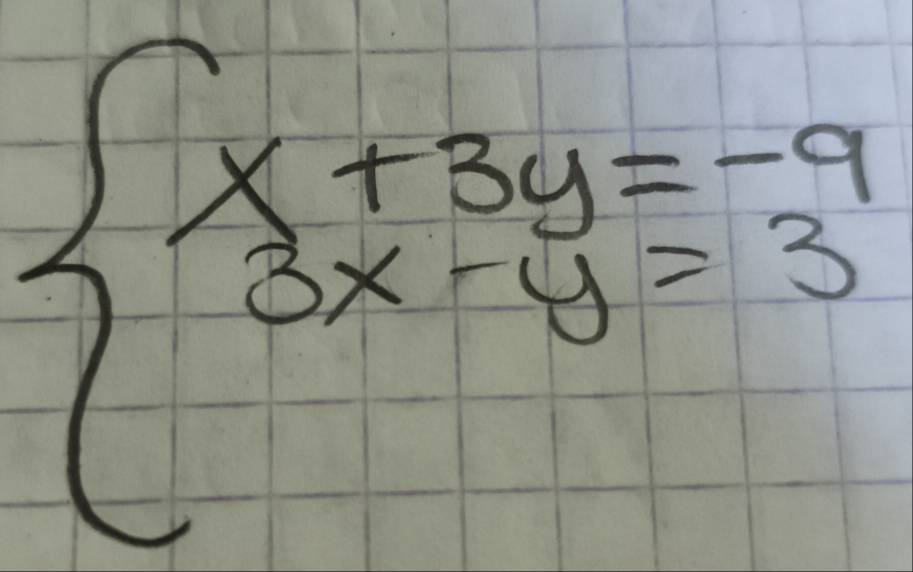 x + 3y = -9
3x - y = 3